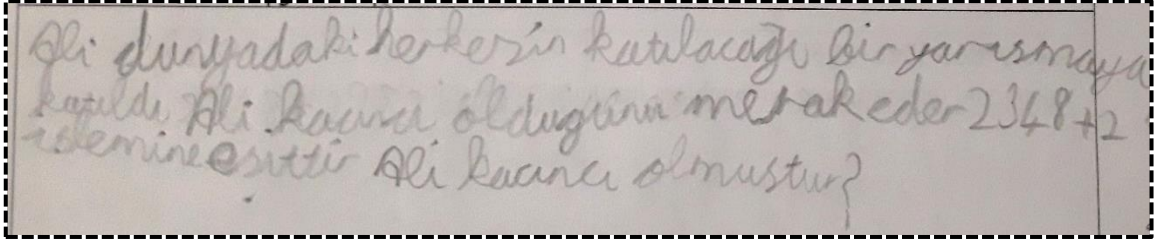 Ali dunyadaki herkezin katılacağı bir yarısmaya
katıldı Ali kacıncı oldugunu merak eder 2348+2
islemine esittir Ali kacıncı olmustur?